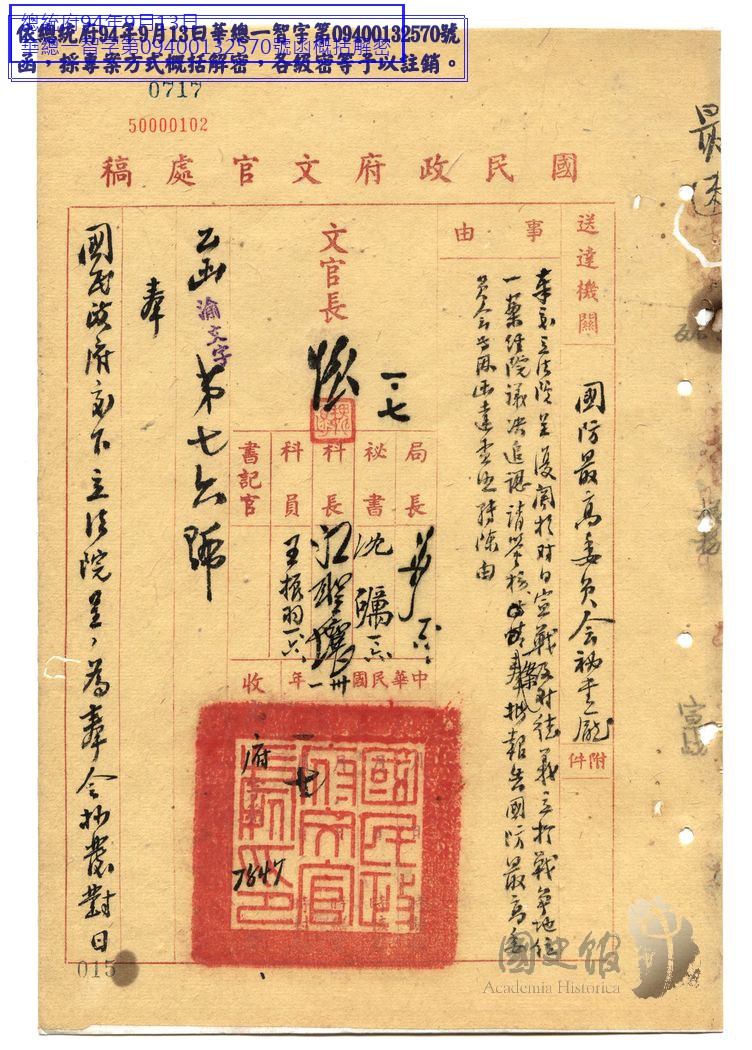 總統府94年9月13日
華總一智字第09400132570號函概括解密
依總統府94年9月13日華總一智字第09400132570號
函，採專案方式概括解密，各級密等予以註銷。
0717
50000102
國民政府文官處稿
最速
送達機關
國防最高委員會祕書廳
附件
事由
奉交立法院呈復關於對日宣戰及對德義立於戰爭地位
一案經院議決追認請鑒核
奉批報告國防最高委
員會等因函達查照轉陳由
文官長
一.七
局長
祕書
沈礪
科長
科員
王振羽
書記官
中華民國卅一年
一
七
收
府
7647
國民政府文官處印
公函
渝文字
第七六號
奉
國民政府交下立法院呈，為奉令抄發對日
015
國史館
Academia Historica